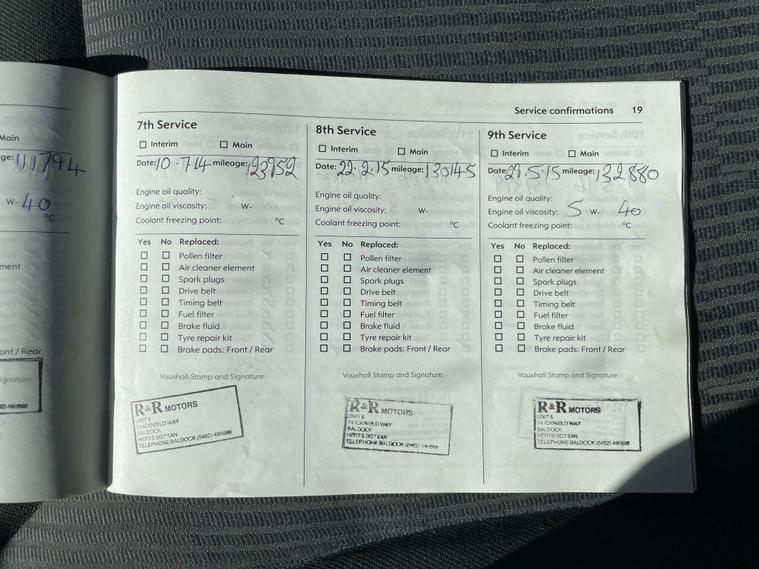 Service confirmations 19
Main
ge: 111794
W- 40
°C
ment
ont / Rear
ignature
7th Service
Interim Main
Date: 10.7.14 mileage: 123952
Engine oil quality:
Engine oil viscosity: W-
Coolant freezing point: °C
Yes No Replaced:
Pollen filter
Air cleaner element
Spark plugs
Drive belt
Timing belt
Fuel filter
Brake fluid
Tyre repair kit
Brake pads: Front / Rear
Vauxhall Stamp and Signature
R&R MOTORS
UNIT 5
74 ICKNIELD WAY
BALDOCK
HERTS SG7 5AN
TELEPHONE BALDOCK (0462) 490686
8th Service
Interim Main
Date: 22.2.15 mileage: 130145
Engine oil quality:
Engine oil viscosity: W-
Coolant freezing point: °C
Yes No Replaced:
Pollen filter
Air cleaner element
Spark plugs
Drive belt
Timing belt
Fuel filter
Brake fluid
Tyre repair kit
Brake pads: Front / Rear
Vauxhall Stamp and Signature
R&R MOTORS
74 ICKNIELD WAY
BALDOCK
HERTS SG7 5AN
TELEPHONE BALDOCK (0462) 490686
9th Service
Interim Main
Date: 29.5.15 mileage: 132880
Engine oil quality:
Engine oil viscosity: 5 W- 40
Coolant freezing point: °C
Yes No Replaced:
Pollen filter
Air cleaner element
Spark plugs
Drive belt
Timing belt
Fuel filter
Brake fluid
Tyre repair kit
Brake pads: Front / Rear
Vauxhall Stamp and Signature
R&R MOTORS
UNIT 5
74 ICKNIELD WAY
BALDOCK
HERTS SG7 5AN
TELEPHONE BALDOCK (0462) 490686